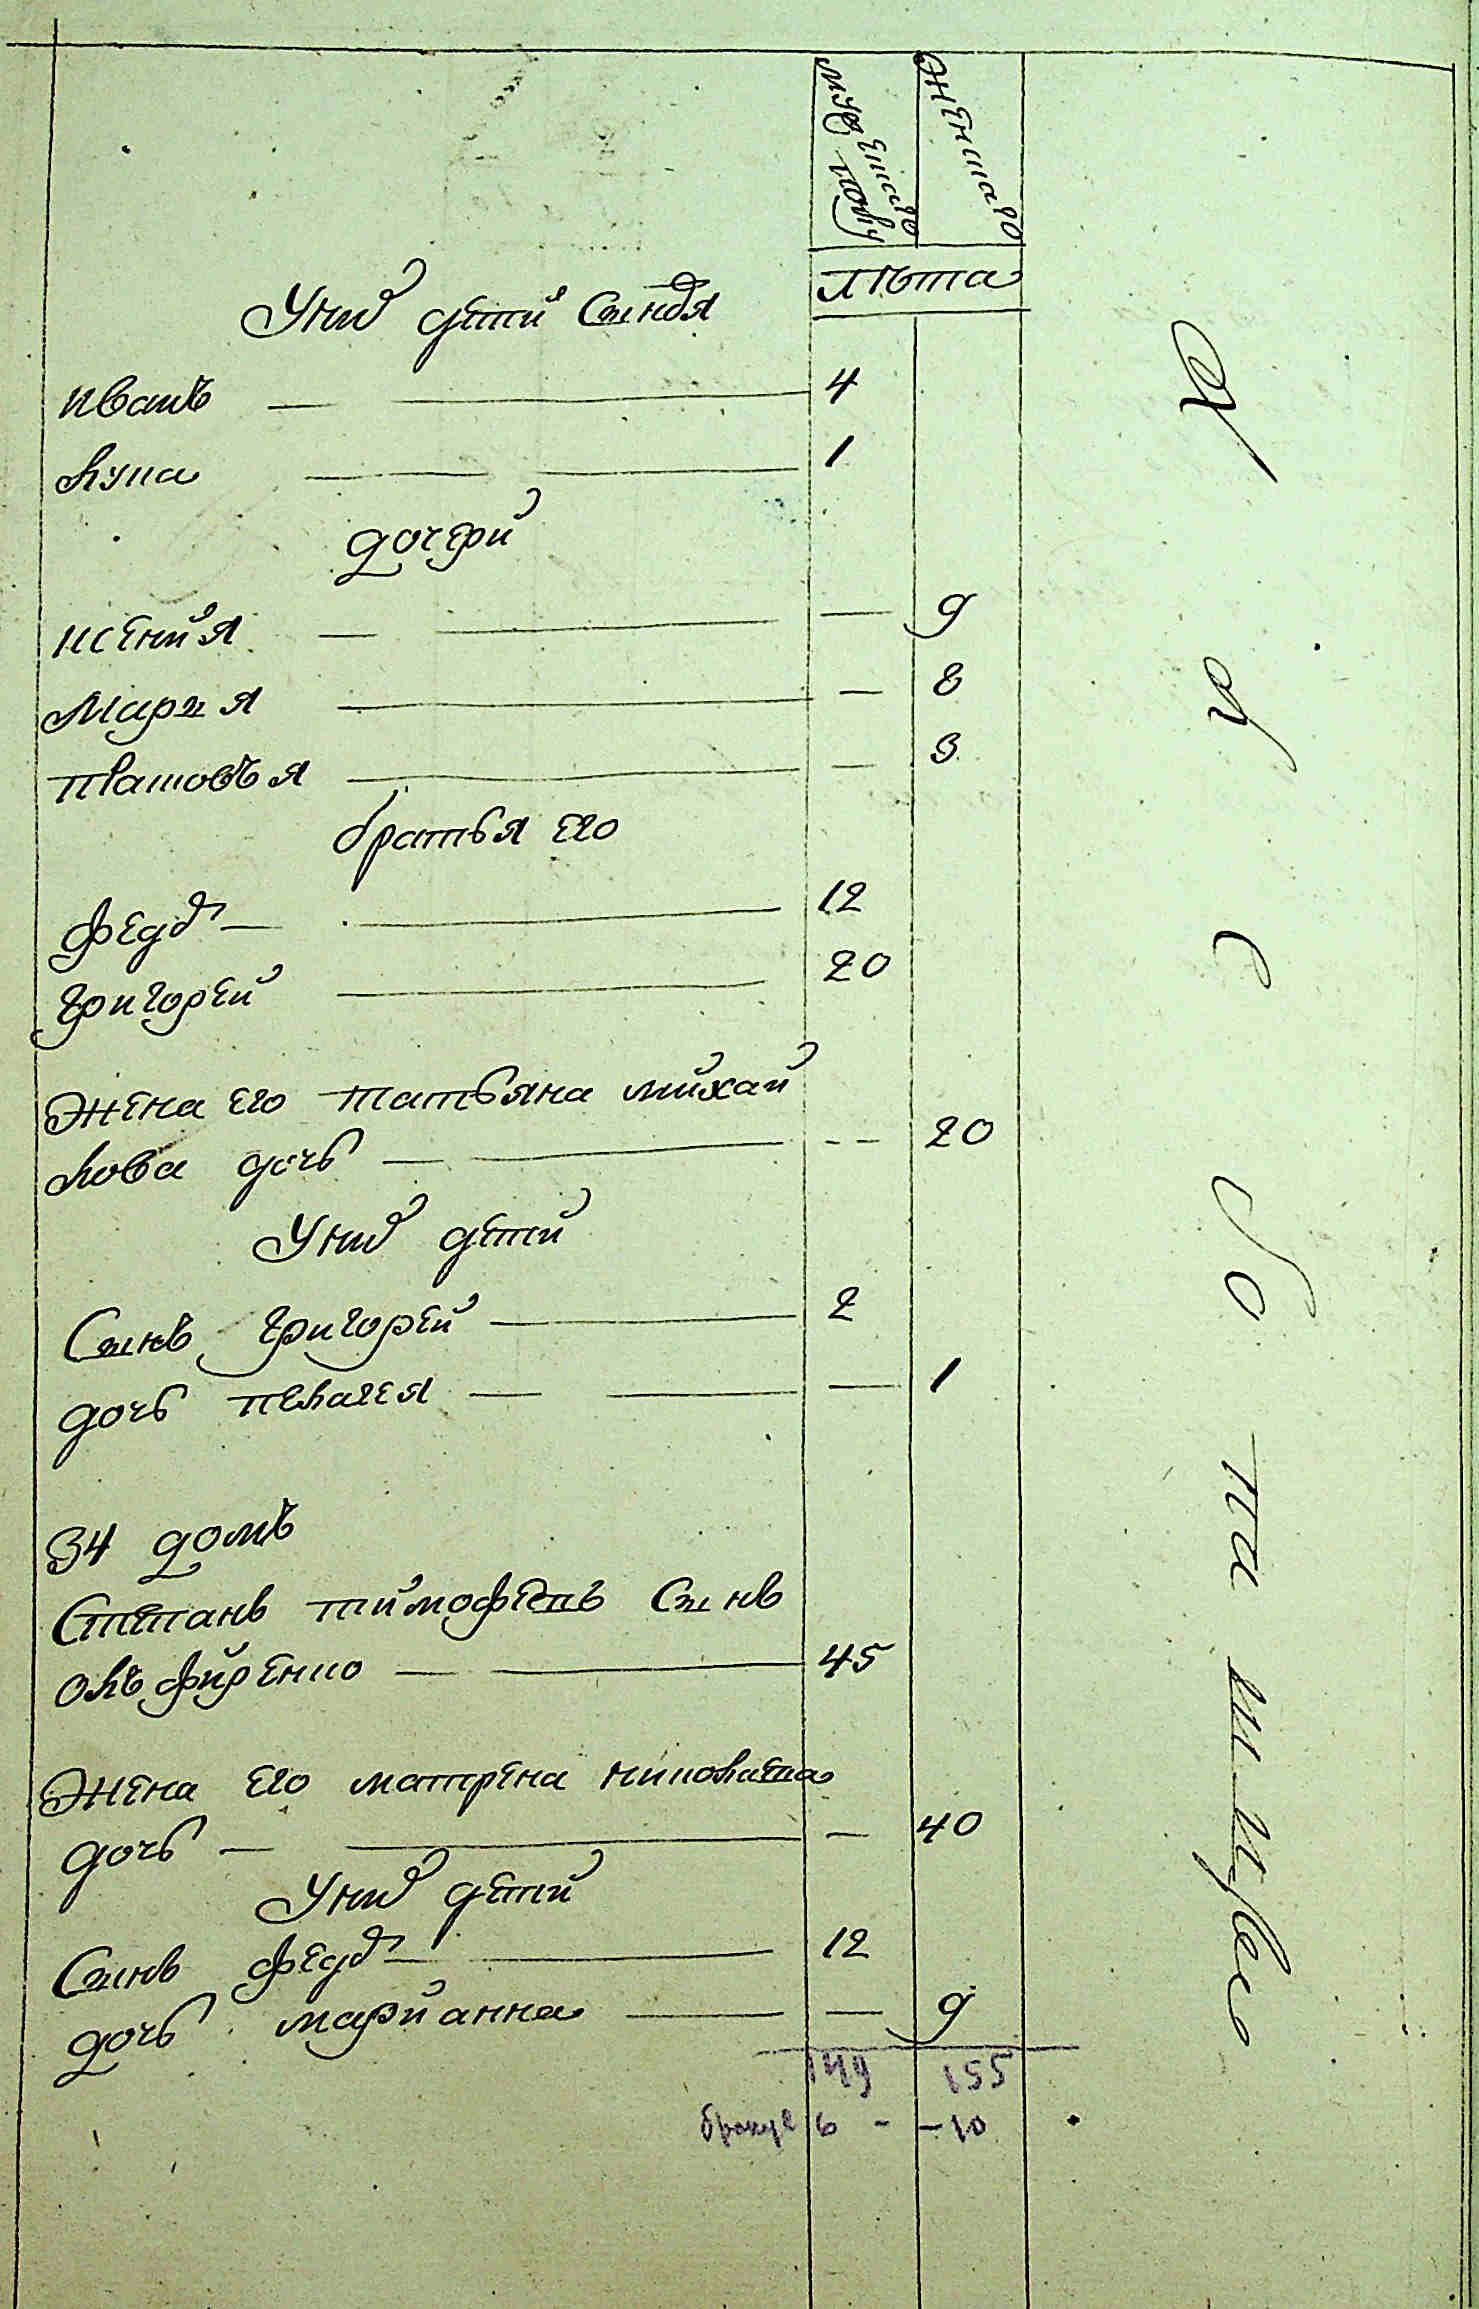 мужеска полу
женска
лѣта
У них дети сыновя
иванъ 4
лука 1
дочери
ксения 9
Мария 8
прасковъя 3
братья его
федор 12
григорей 20
жена его татьяна михай
лова дочь 20
У них дети
Сынъ григорей 2
дочь пелагея 1
34 домъ
Степанъ тимофеевъ Сынъ
олъфиренко 45
жена его матрена николаева
дочь 40
У них дети
Сынъ федор 12
дочь марианна 9
149 155
бракує 6 - - 10